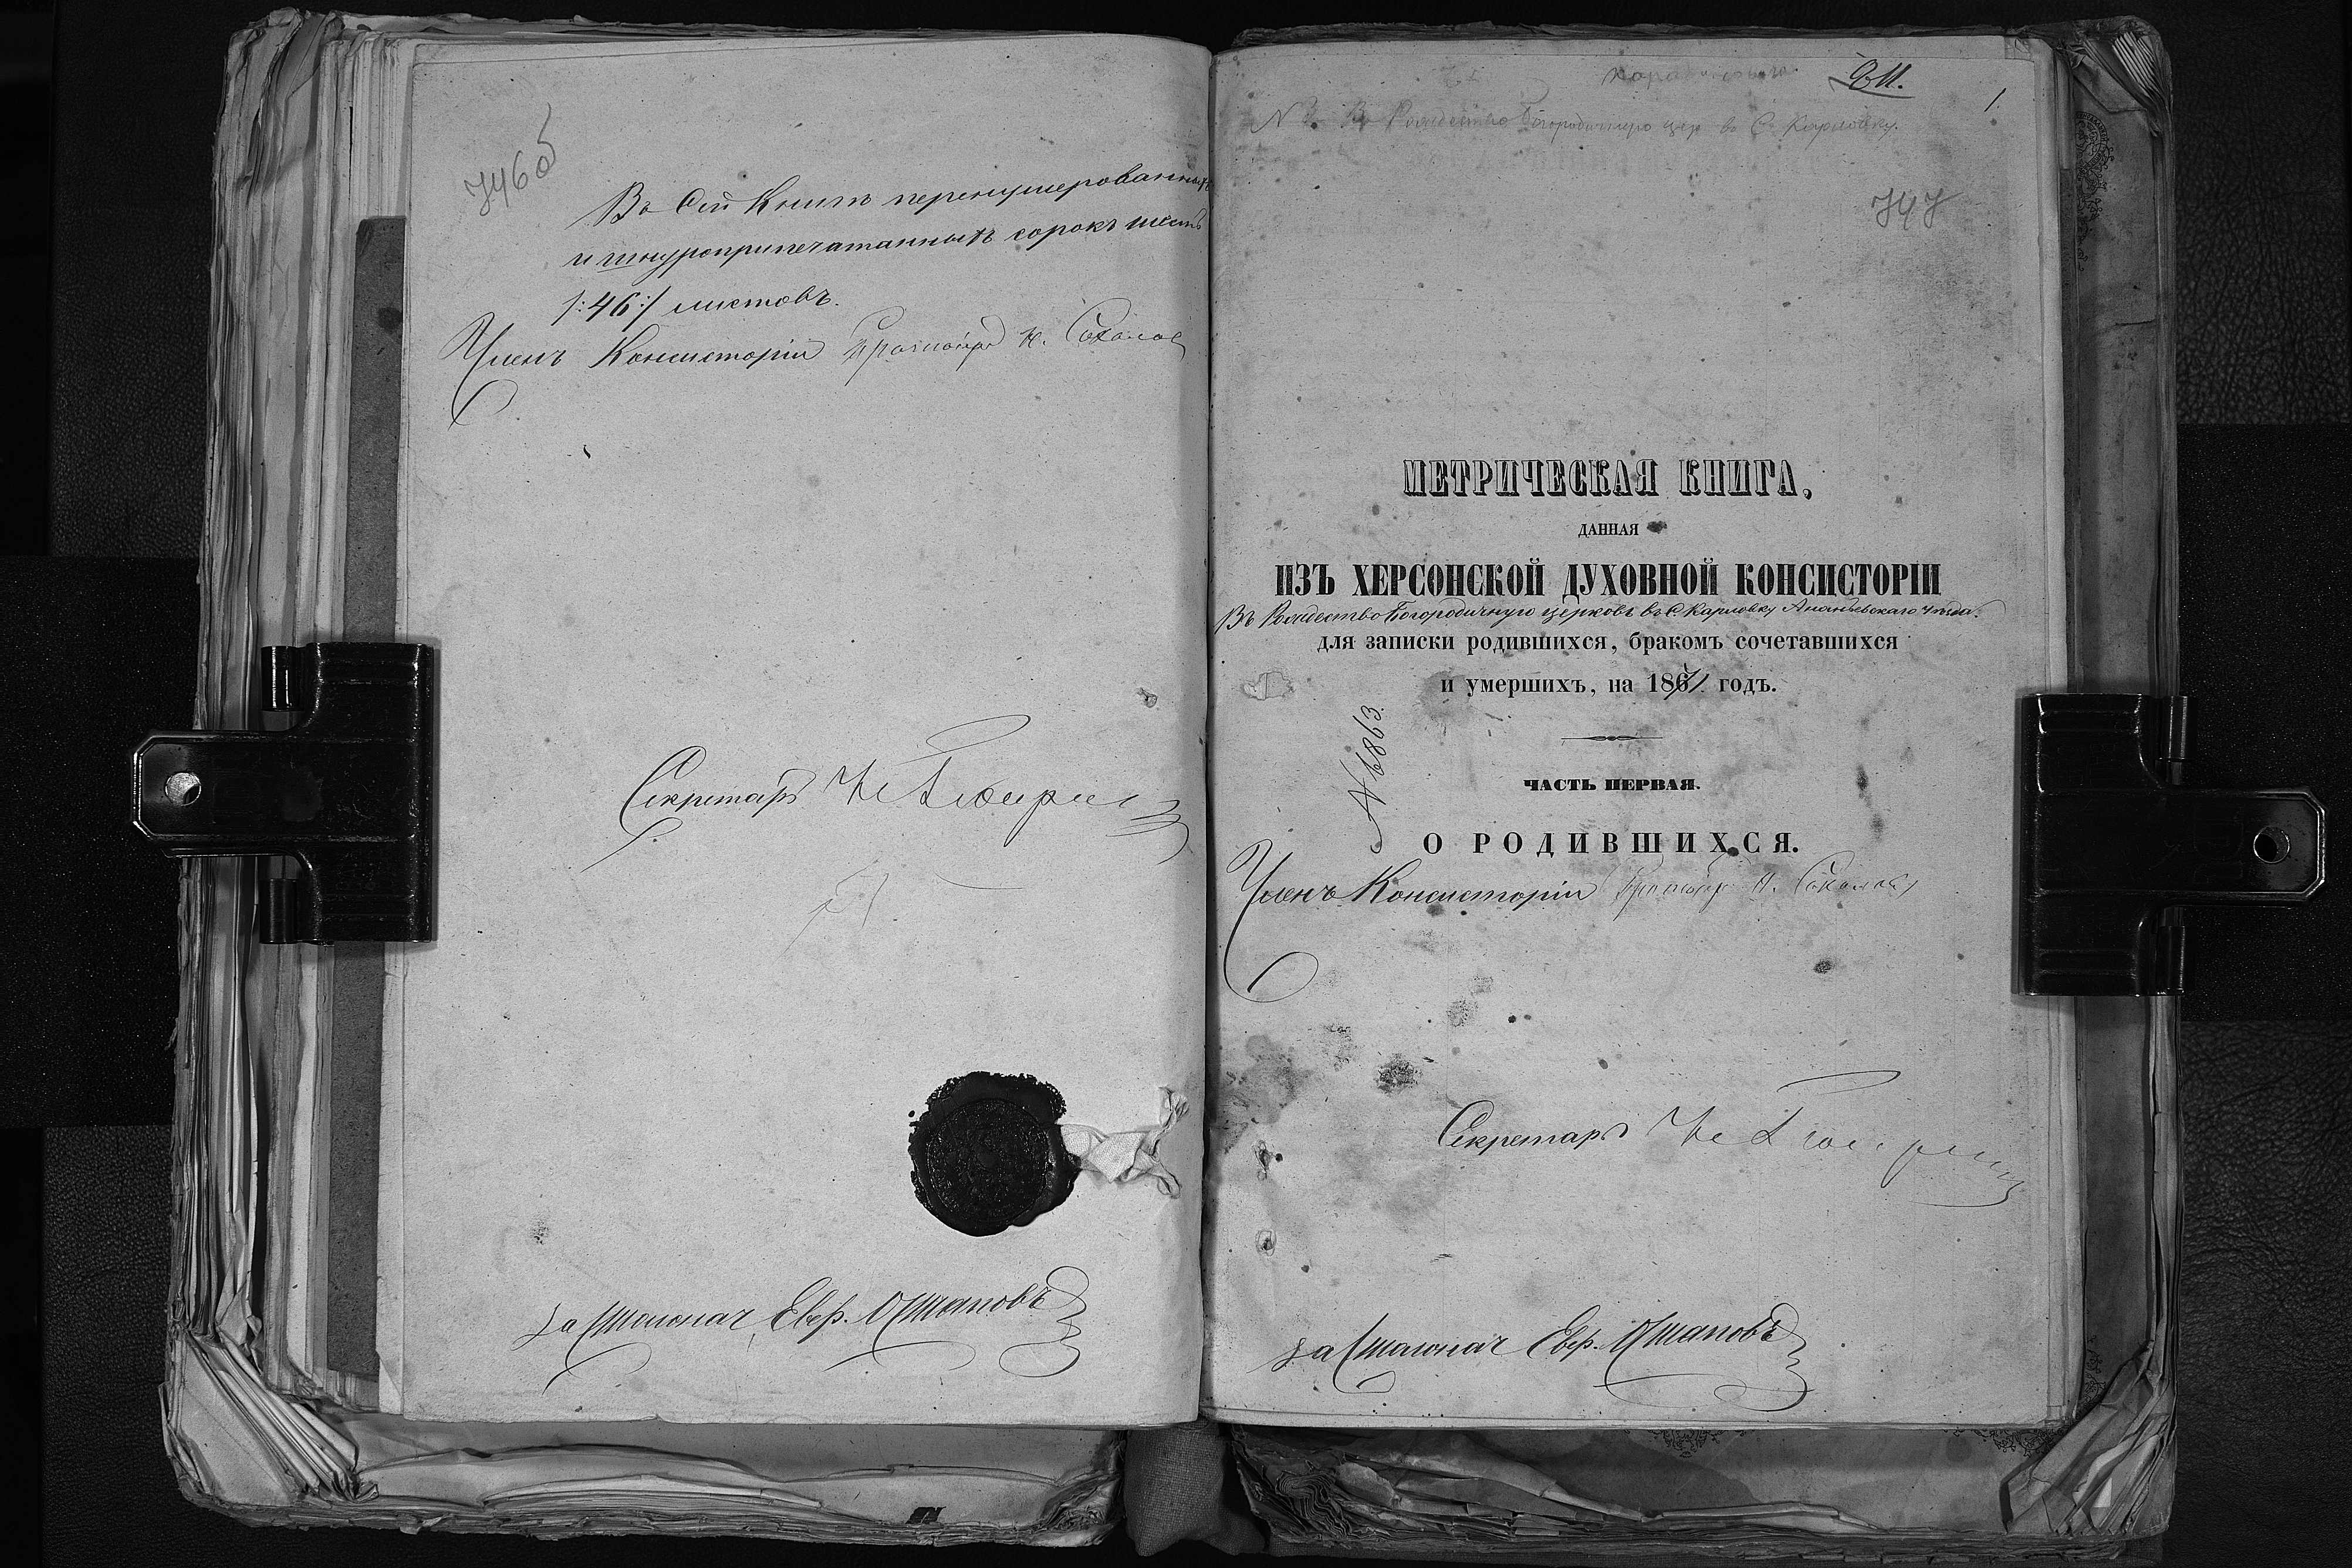 746об
Въ Сей Книгѣ перенумерованныхъ
и шнуроприпечатанныхъ сорокъ шесть
/:46:/ листовъ.
Членъ Консисторіи Протоіерей Н. Соколов
Секретарь
За Столонач Евф. Остаповъ
1.
№ Въ Рождество Богородичную цер въ С. Карловку.
747
МЕТРИЧЕСКАЯ КНИГА,
ДАННАЯ
ИЗЪ ХЕРСОНСКОЙ ДУХОВНОЙ КОНСИСТОРІИ
Въ Рождество Богородичную церковь въ С. Карловку Ананьевскаго уѣзда.
для записки родившихся, бракомъ сочетавшихся
и умершихъ, на 1861 годъ.
№ 6863.
ЧАСТЬ ПЕРВАЯ.
О РОДИВШИХСЯ.
Членъ Консисторіи Протоіерей Н. Соколов
Секретарь
За Столонач Евф. Остаповъ